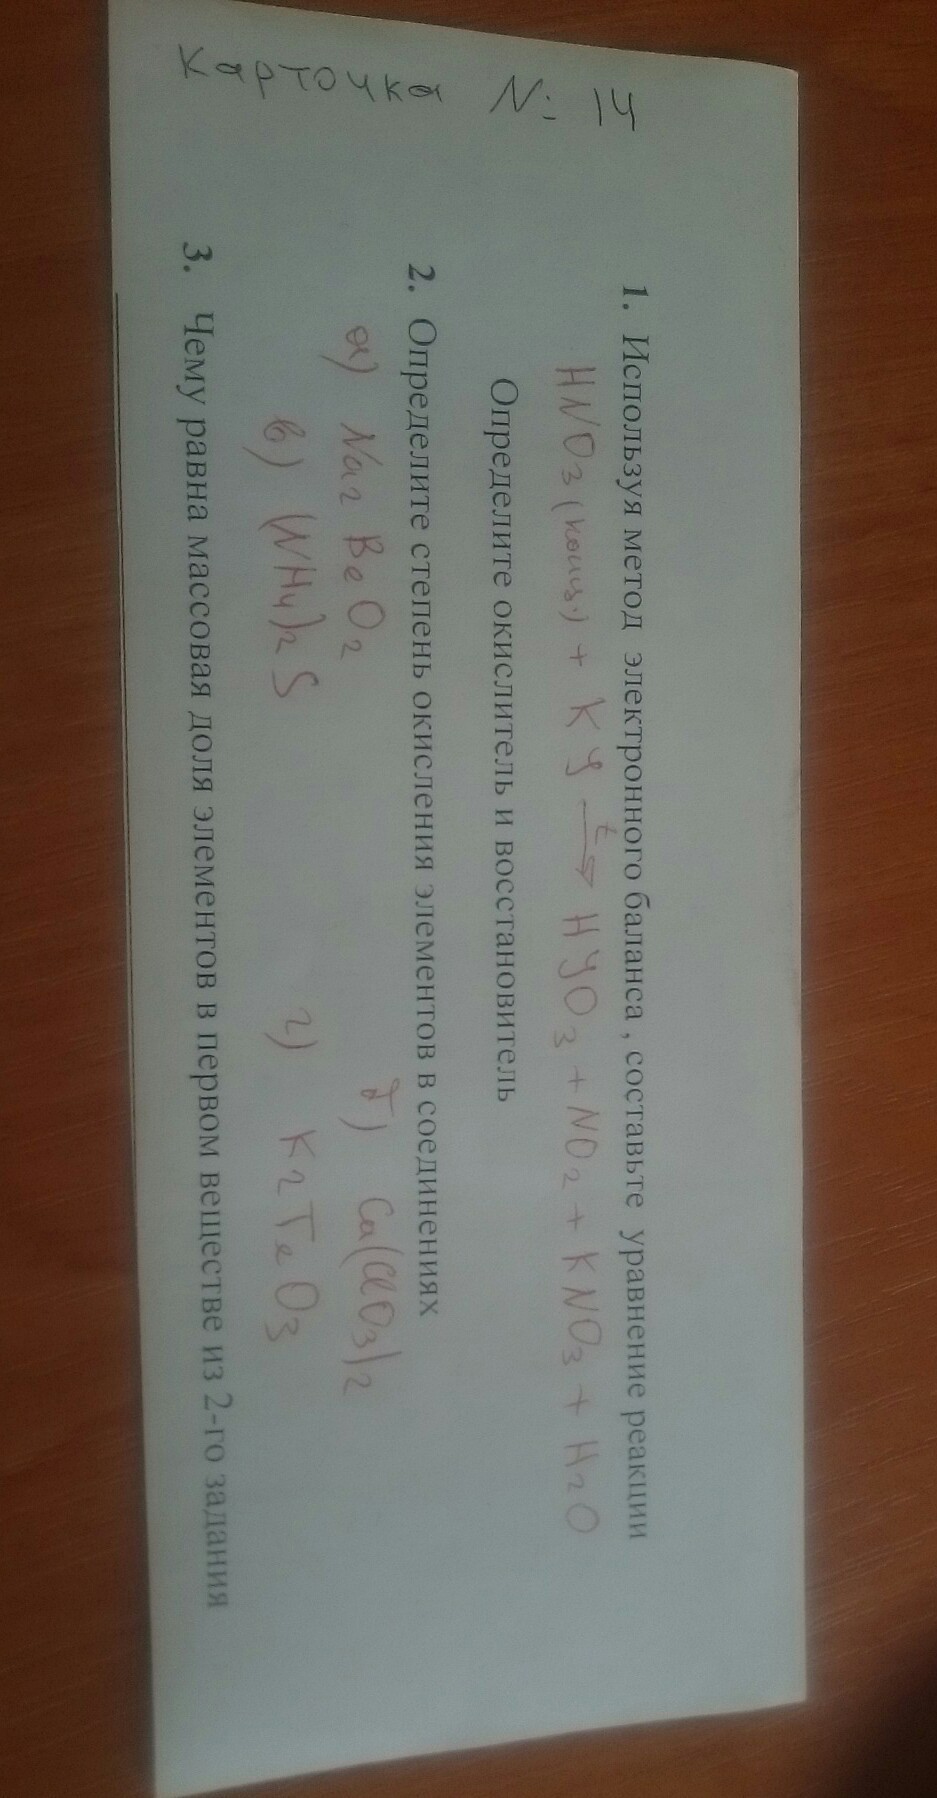 Карточка №: 14
1. Используя метод электронного баланса, составьте уравнение реакции
HNO3(конц.) + KJ →t HJO3 + NO2 + KNO3 + H2O
Определите окислитель и восстановитель
2. Определите степень окисления элементов в соединениях
а) Na2BeO2 б) Ca(ClO3)2
в) (NH4)2S г) K2TeO3
3. Чему равна массовая доля элементов в первом веществе из 2-го задания